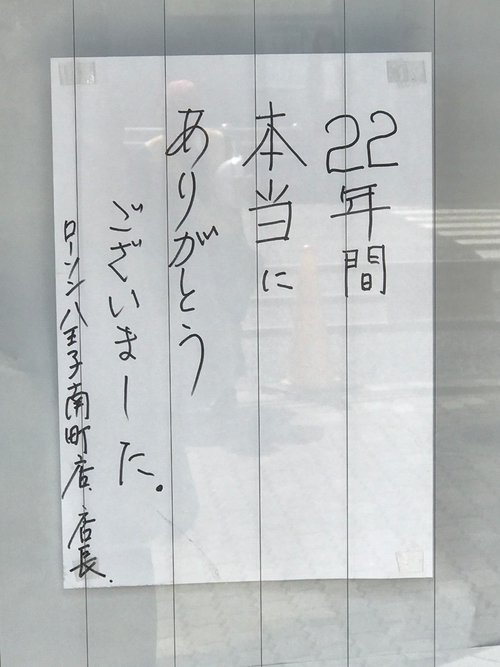 22年間
本当に
ありがとう
ございました。
ローソン八王子南町店、店長.